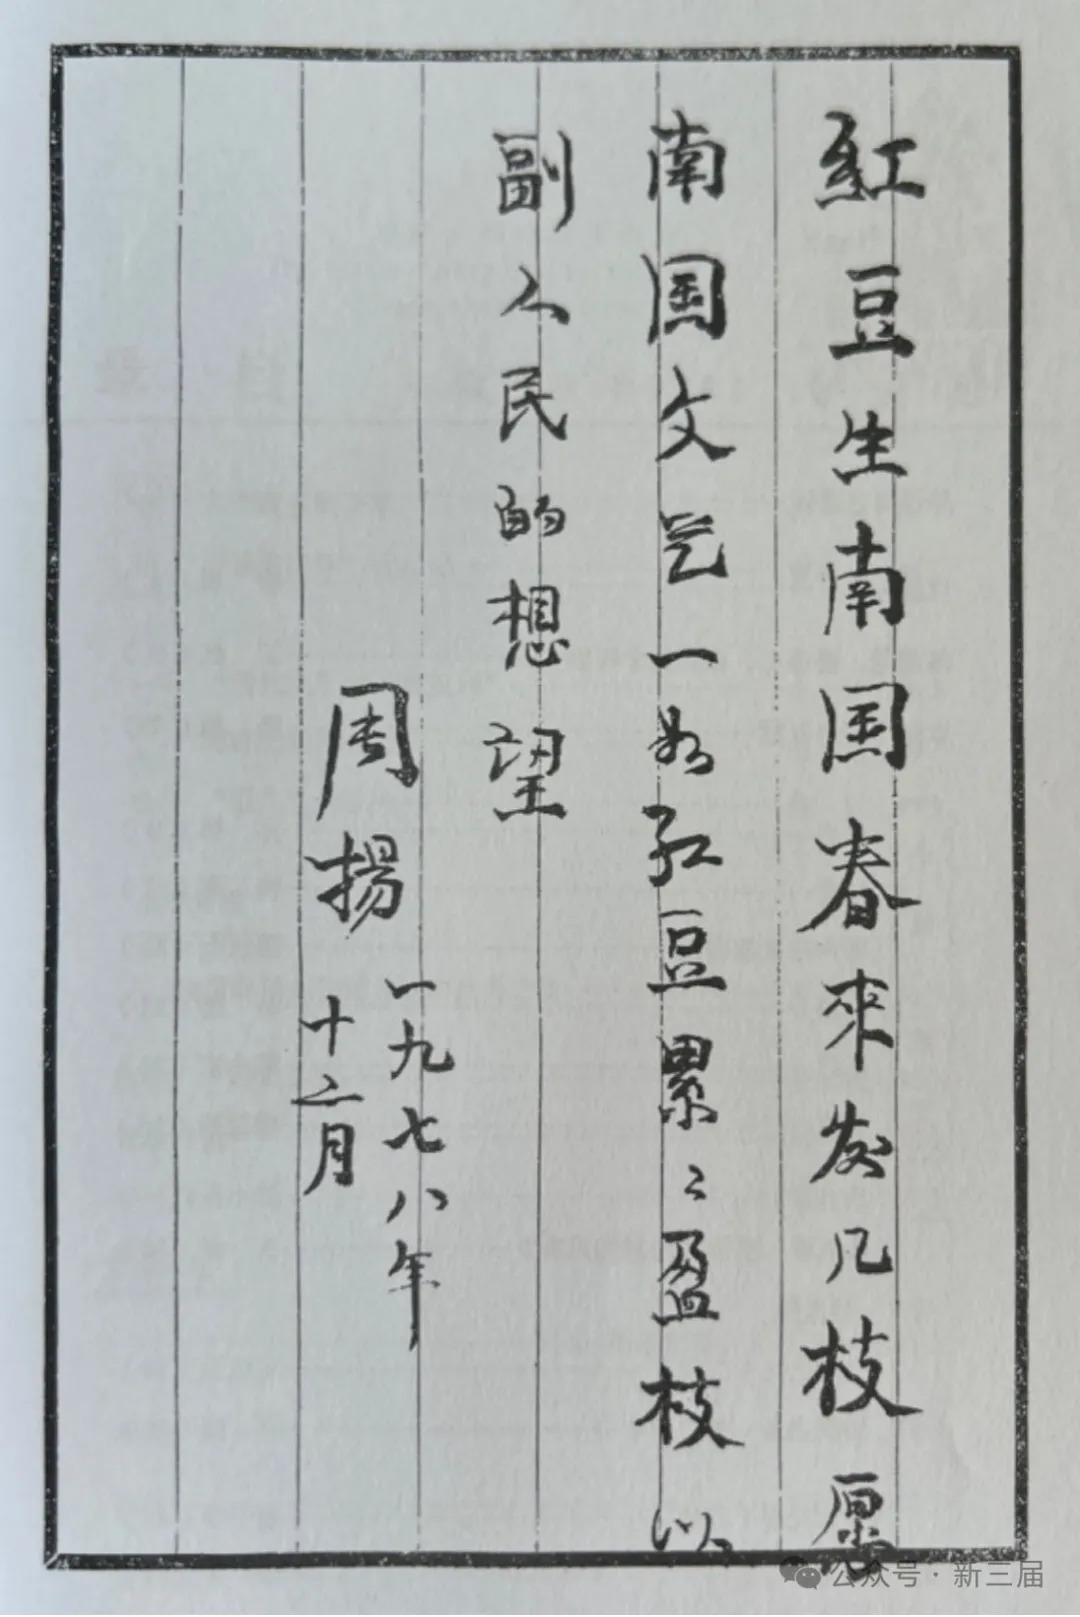 紅豆生南国春来发几枝愿
南国文艺一如红豆累〻盈枝以
副人民的想望
周揚
一九七八年
十二月
公众号·新三届